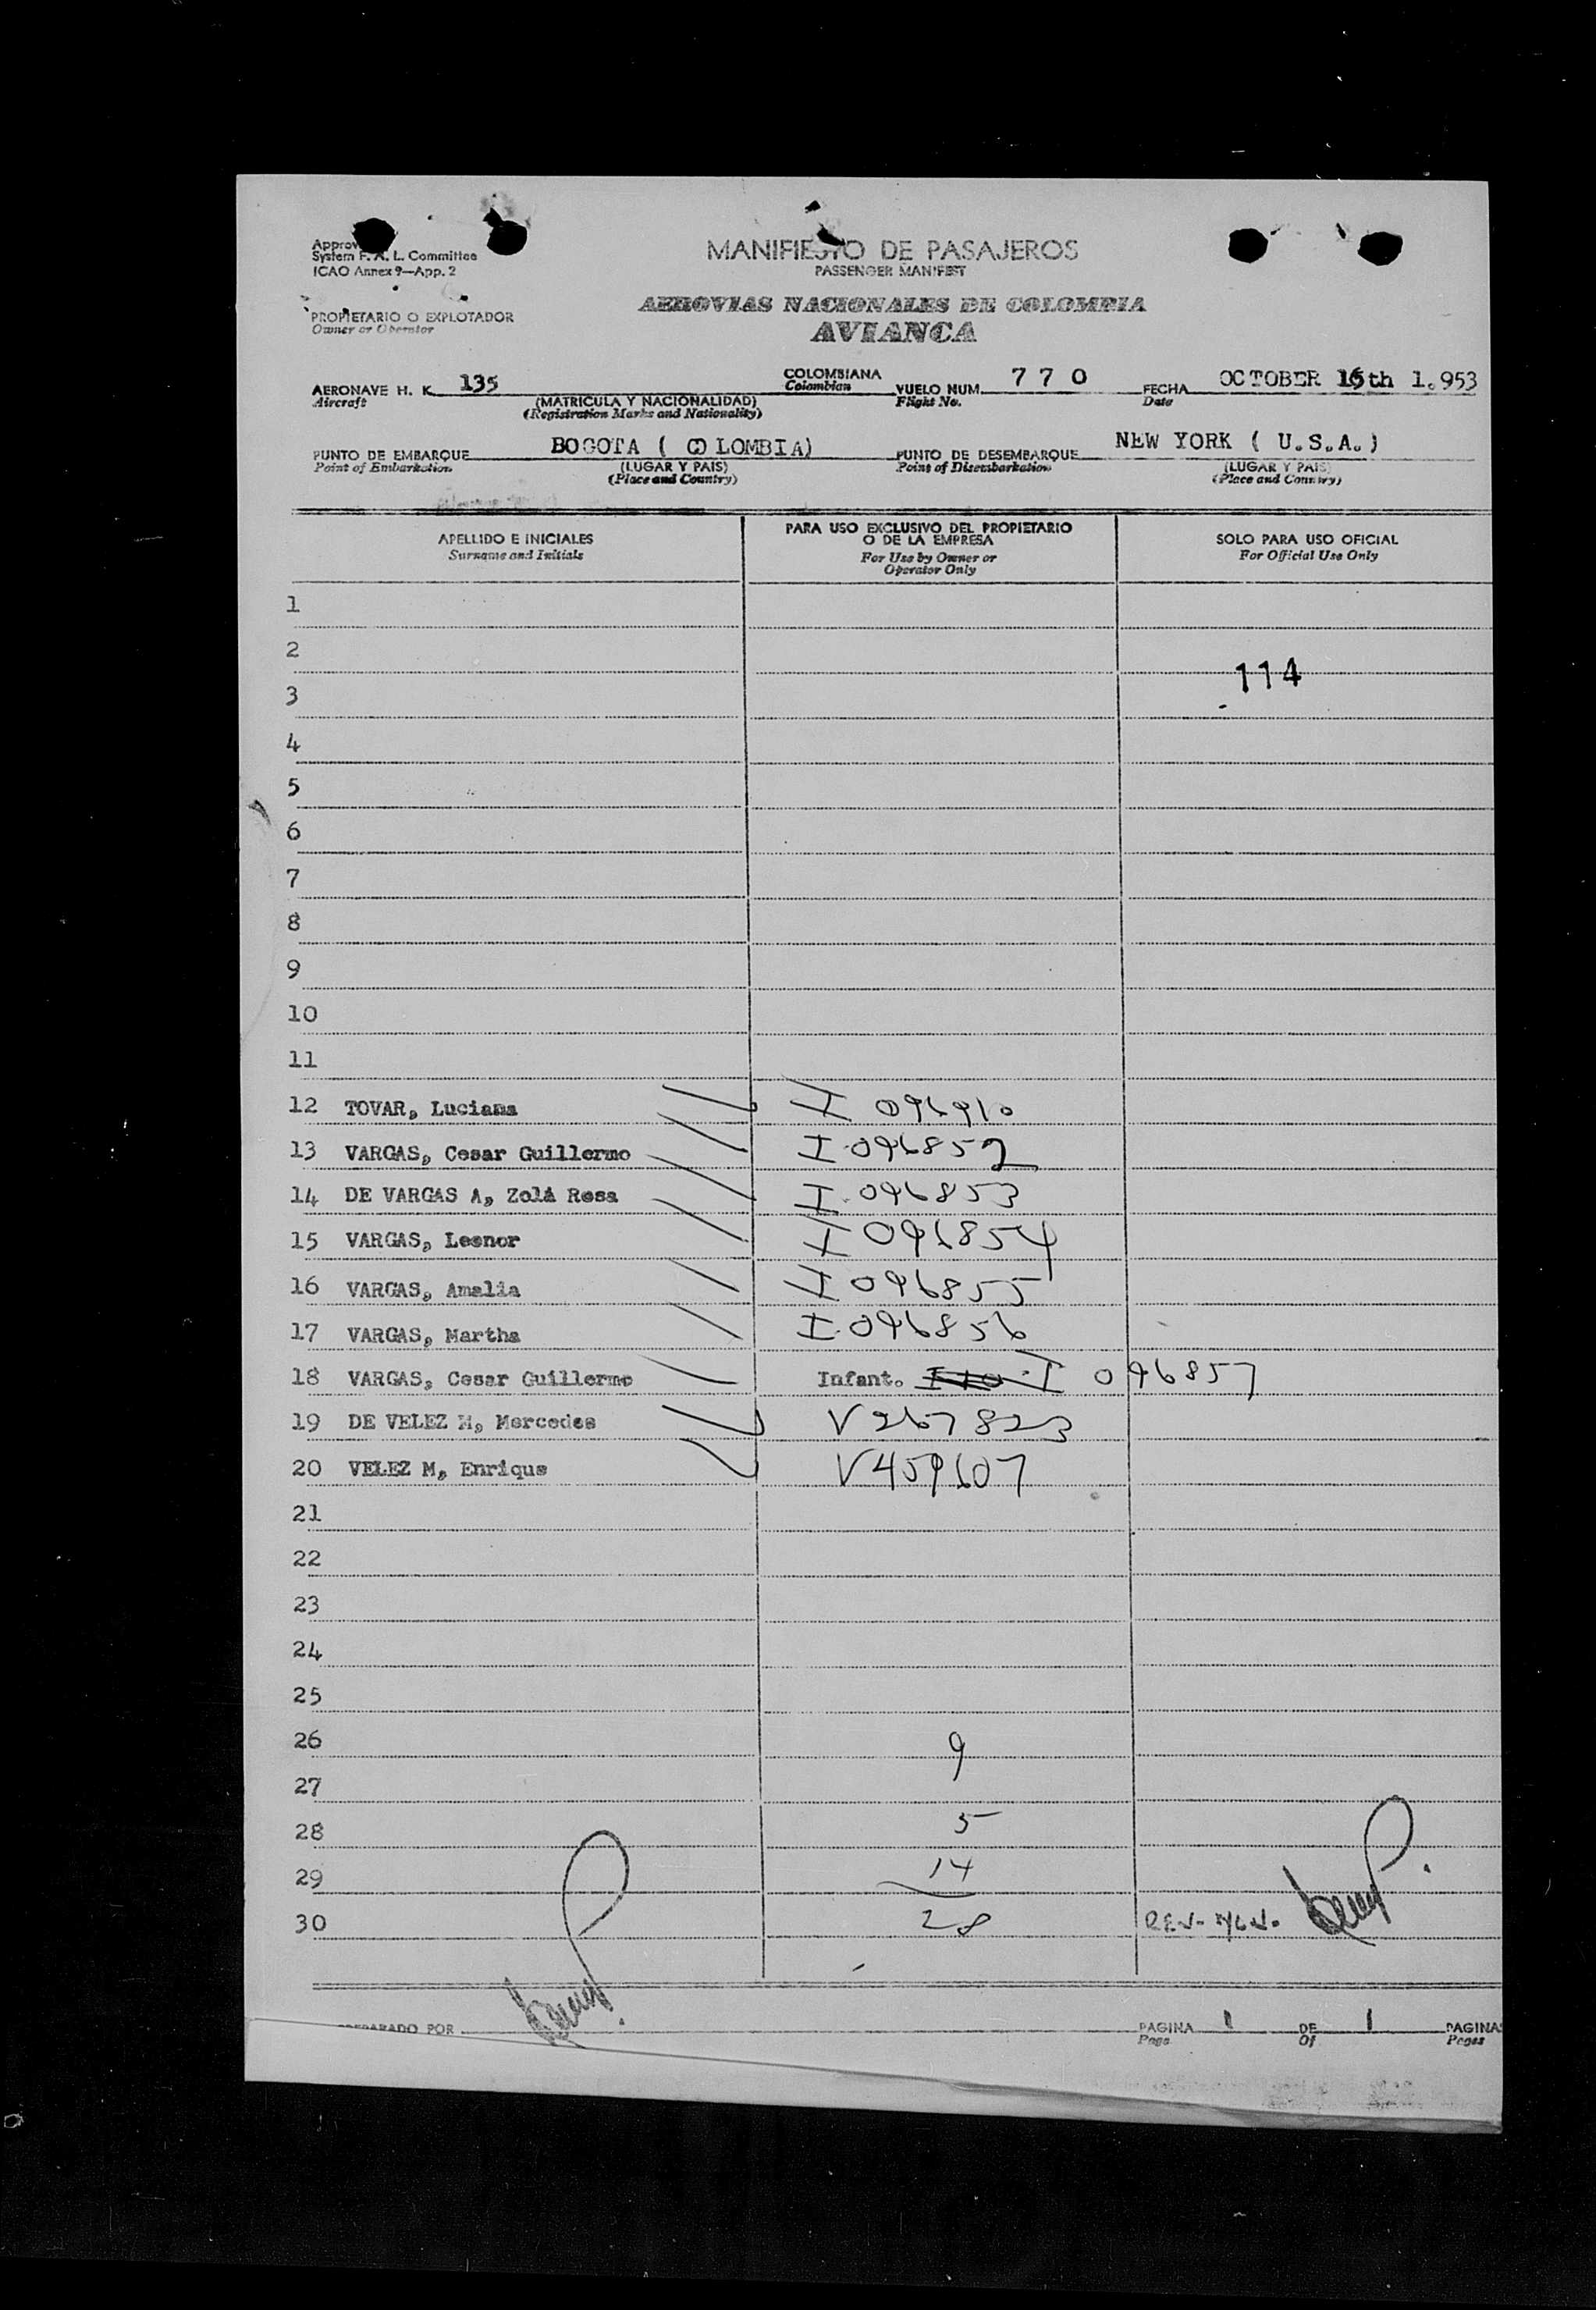 MANIFIESTO DE PASAJEROS
PASSENGER MANIFEST
System F. A. L. Committee
ICAO Annex 9—App. 2
AEROVIAS NACIONALES DE COLOMBIA
AVIANCA
PROPIETARIO O EXPLOTADOR
Owner or Operator
AERONAVE H. K. 135 COLOMBIANA VUELO NUM. 7 7 0 FECHA OCTOBER 15th 1.953
Aircraft (MATRICULA Y NACIONALIDAD) Colombian Flight No. Date
(Registration Marks and Nationality)
PUNTO DE EMBARQUE BOGOTA ( COLOMBIA) PUNTO DE DESEMBARQUE NEW YORK ( U.S.A.)
Point of Embarkation (LUGAR Y PAIS) Point of Disembarkation (LUGAR Y PAIS)
(Place and Country) (Place and Country)
APELLIDO E INICIALES PARA USO EXCLUSIVO DEL PROPIETARIO O DE LA EMPRESA SOLO PARA USO OFICIAL
Surname and Initials For Use by Owner or Operator Only For Official Use Only
1
2
114
3
4
5
6
7
8
9
10
11
12 TOVAR, Luciana I 096910
13 VARGAS, Cesar Guillermo I-096852
14 DE VARGAS A, Zolá Rosa I-096853
15 VARGAS, Leonor I 096854
16 VARGAS, Amalia I 096855
17 VARGAS, Martha I-096856
18 VARGAS, Cesar Guillermo Infant. I 096857
19 DE VELEZ M, Mercedes V267823
20 VELEZ M, Enrique V459607
21
22
23
24
25
26 9
27
28 5
29 14
30 28
PREPARADO POR PAGINA 1 DE 1 PAGINAS
Page Of Pages